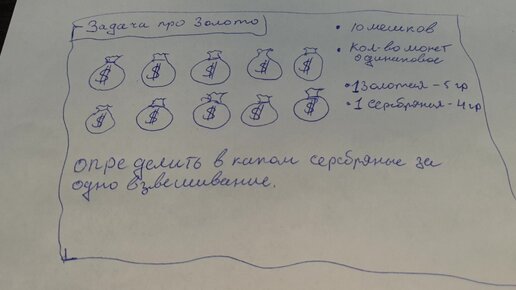 Задача про Золото
• 10 мешков
• Кол-во может одинаковое
• 1 Золотая - 5 гр
• 1 серебряная - 4 гр
$ $ $ $ $
$ $ $ $ $
определить в каком серебряные за
одно взвешивание.